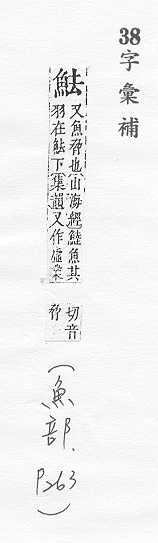 38字彙補
魼
又魚脅也山海經鯥魚其
羽在魼下集韻又作虛業
切音
脅
(魚部、P263)